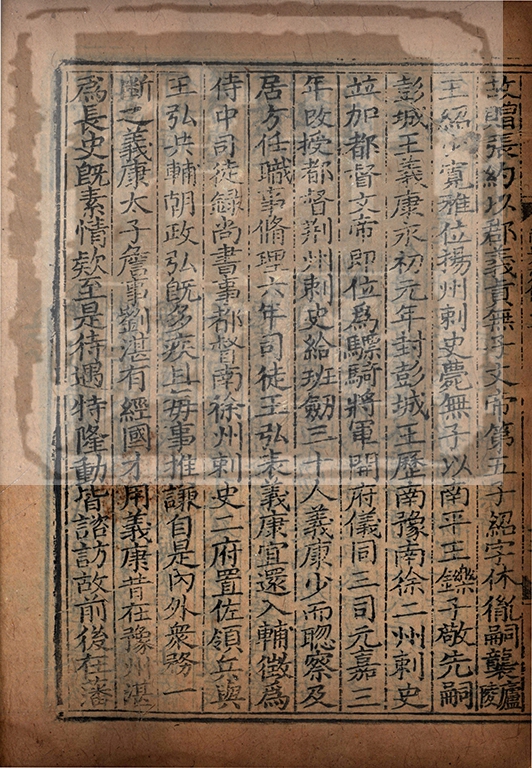 故贈張約以郡義貢無子文帝第五子紹字休胤嗣襲廬陵
王紹少寛雅位揚州刺史薨無子以南平王鑠子敬先嗣
彭城王義康永初元年封彭城王歷南豫南徐二州刺史
並加都督文帝即位爲驃騎將軍開府儀同三司元嘉三
年改授都督荆州刺史給班劒三十人義康少而聦察及
居方任職事脩理六年司徒王弘表義康宜還入輔徵爲
侍中司徒録尚書事都督南徐州刺史二府置佐領兵與
王弘共輔朝政弘既多疾且毎事推謙自是内外衆務一
斷之義康太子詹事劉湛有經國才用義康昔在豫州湛
爲長史既素情欵至是待遇特隆動皆諮訪故前後在藩